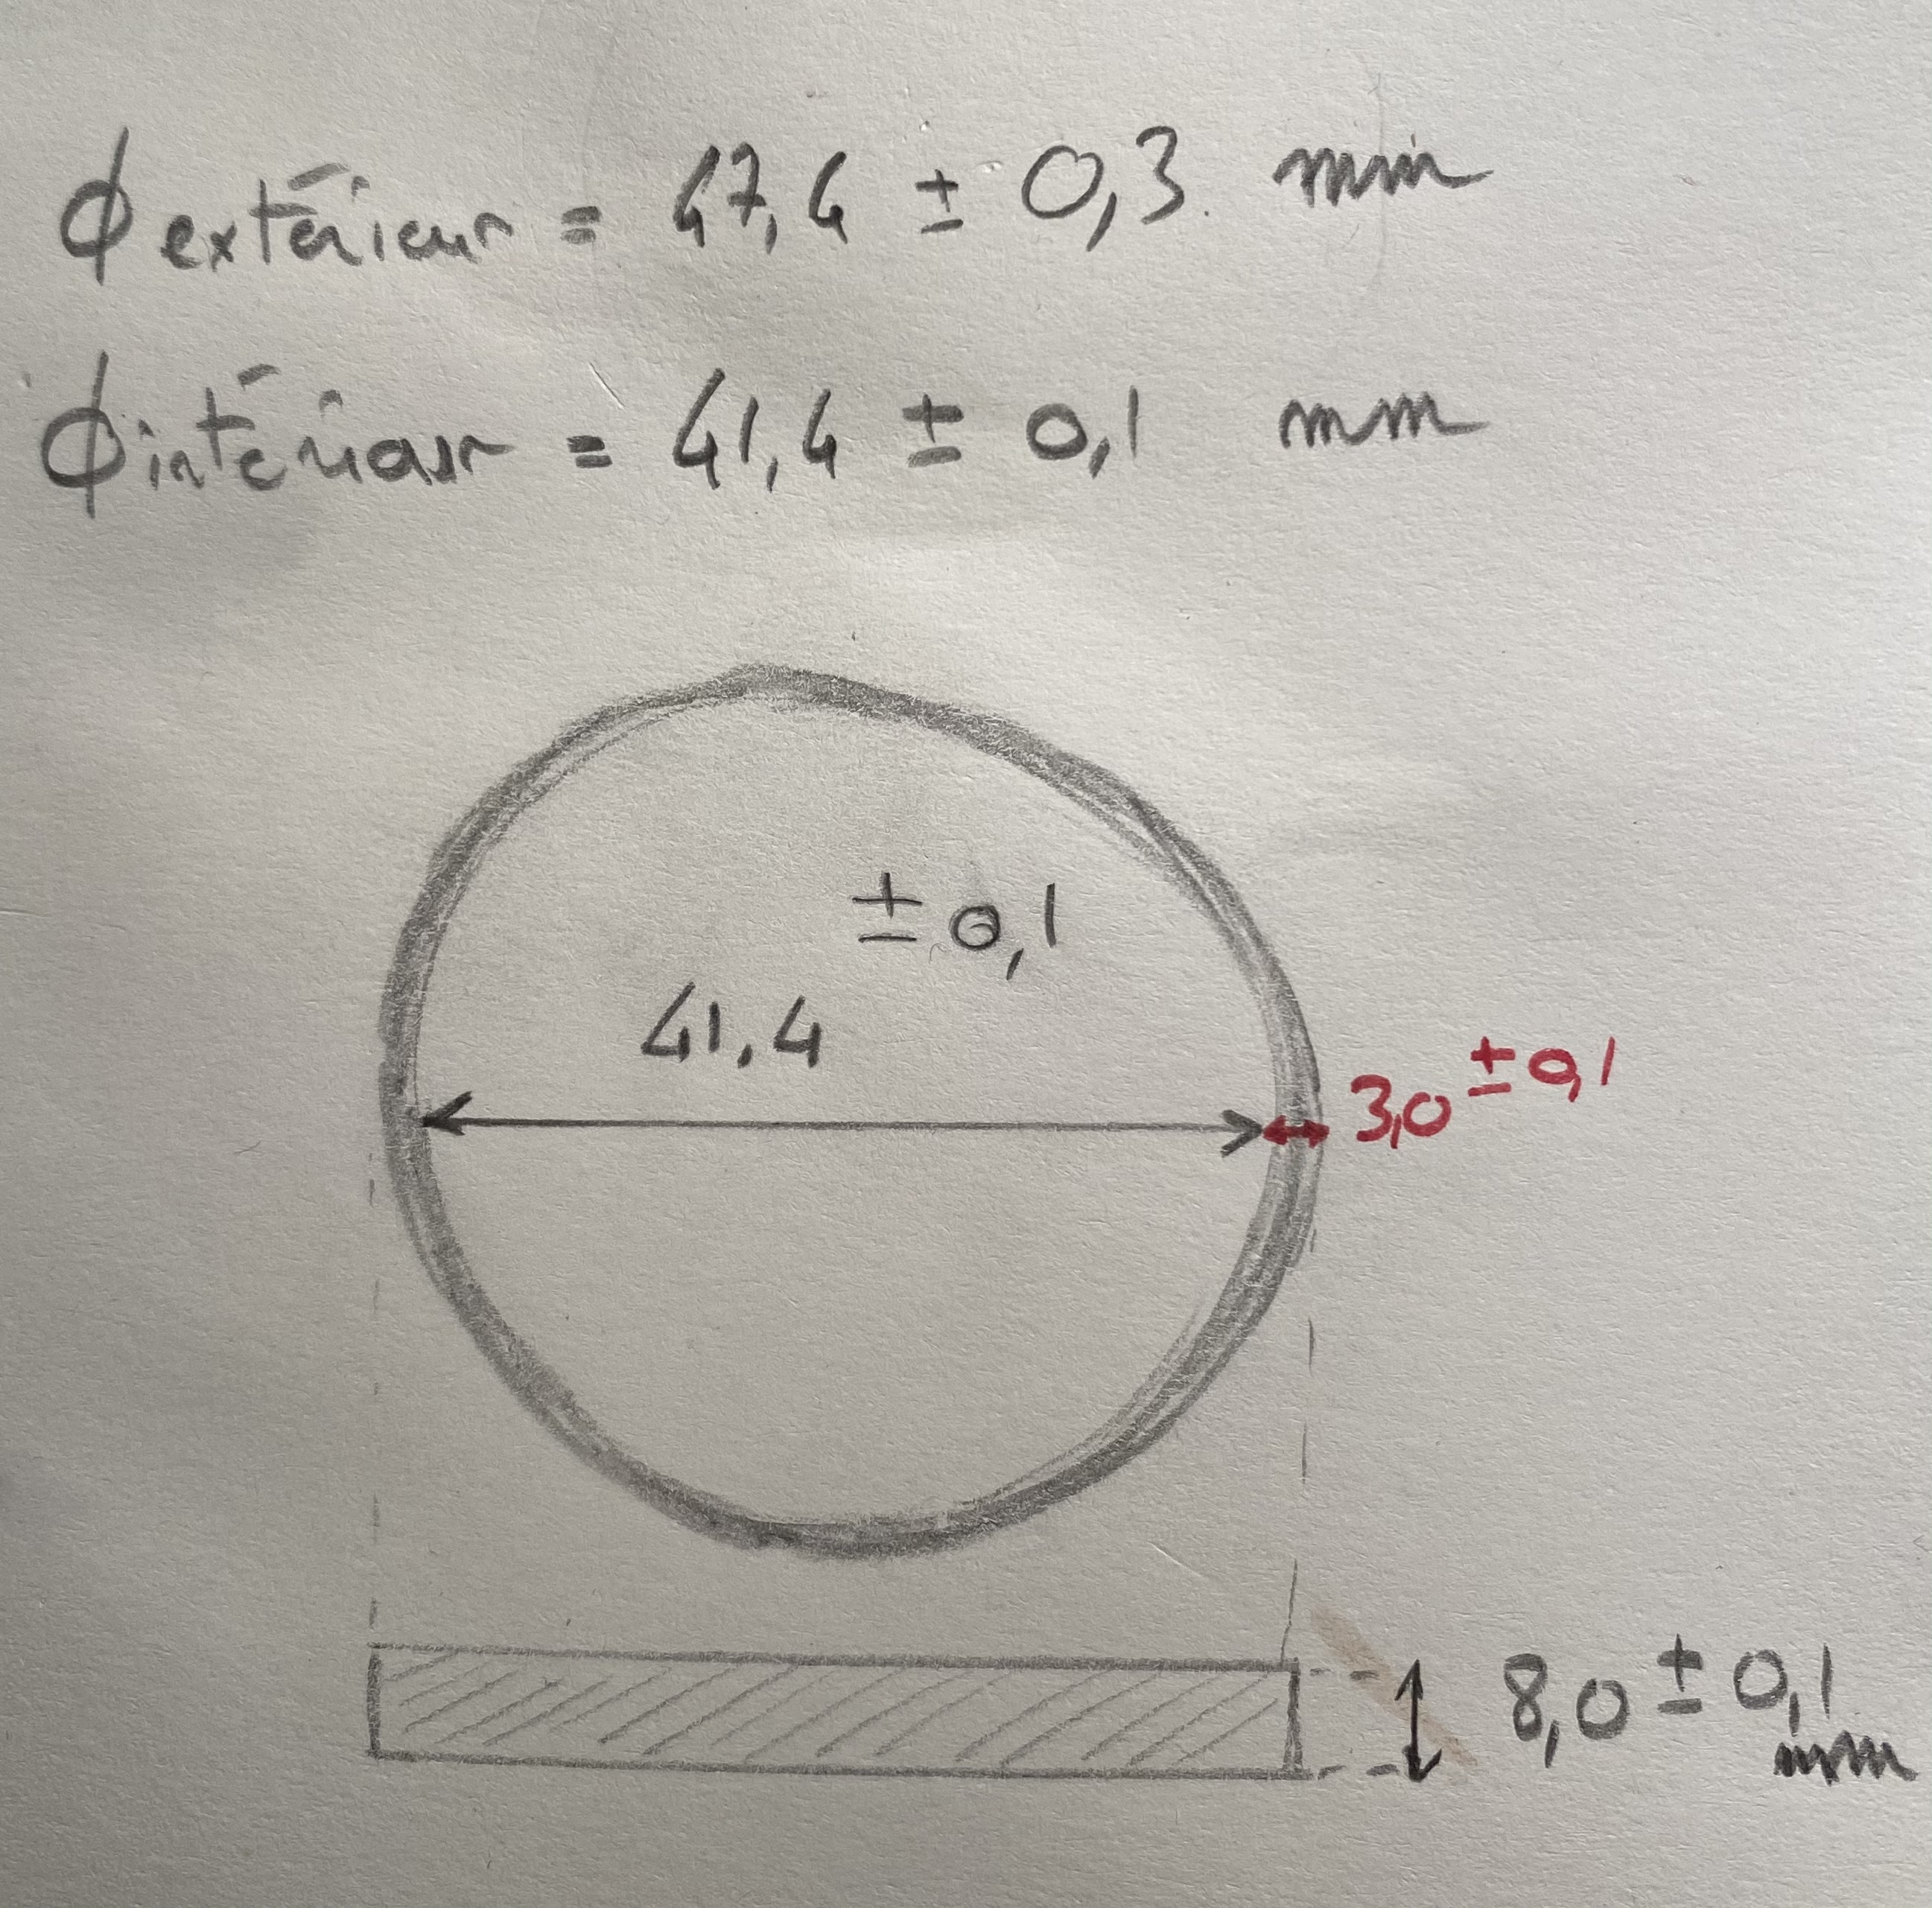 ϕ extérieur = 47,4 ± 0,3 mm
ϕ intérieur = 41,4 ± 0,1 mm
± 0,1
41,4
3,0 ± 0,1
8,0 ± 0,1
mm